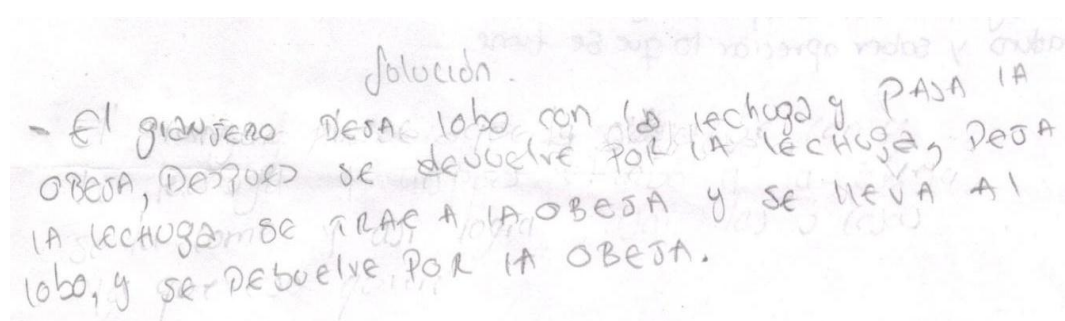 Solución.
- El granjero DEJA lobo con la lechuga y PASA lA
OBEJA, DESPUES se devuelve POR lA lecHuga, DEJA
lA lecHuga se TRAE A lA OBEJA y se lleVA Al
lobo, y se DEbuelve POR lA OBEJA.